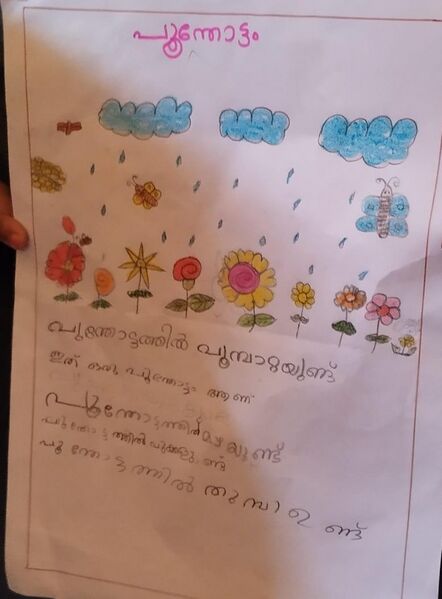 പൂന്തോട്ടം
പൂന്തോട്ടത്തിൽ പൂമ്പാറ്റയുണ്ട്
ഇത് ഒരു പൂന്തോട്ടം ആണ്
പൂന്തോട്ടത്തിൽ മഴയുണ്ട്
പൂന്തോട്ടത്തിൽ പൂക്കളുണ്ട്
പൂന്തോട്ടത്തിൽ തുമ്പി ഉണ്ട്